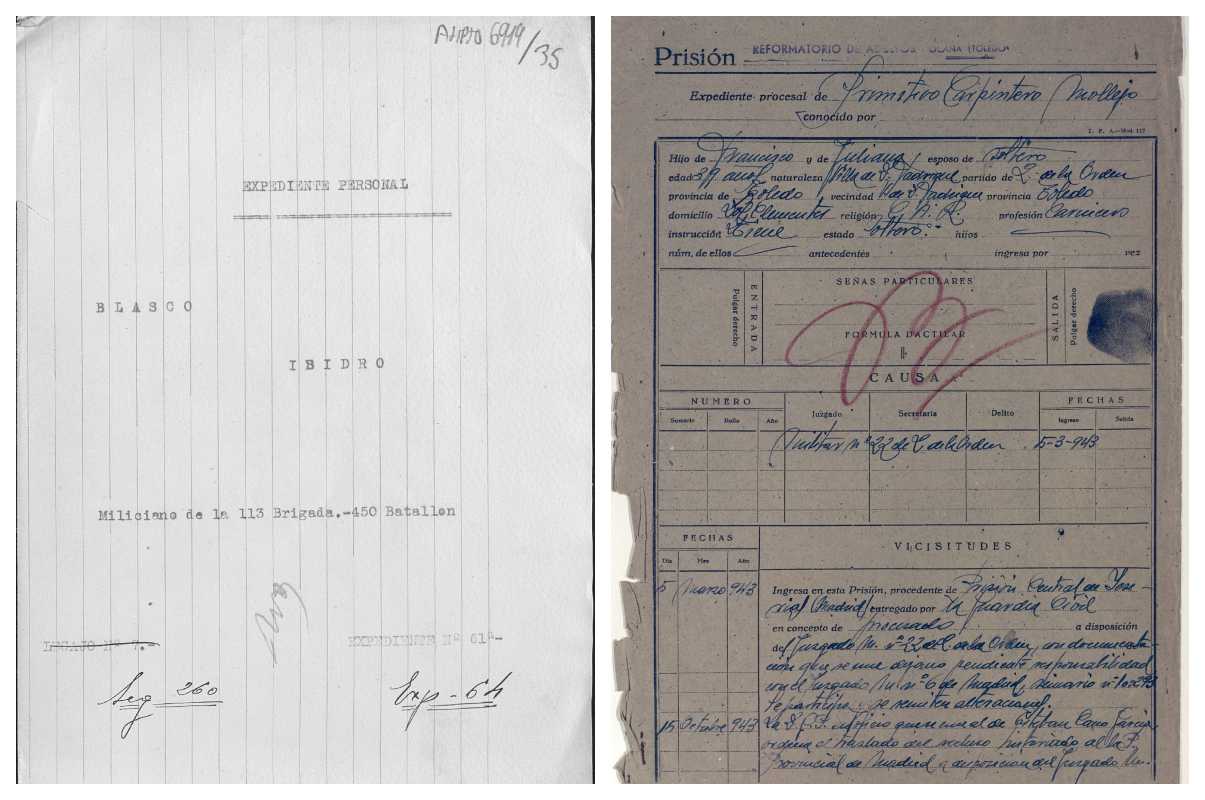 6919/35
EXPEDIENTE PERSONAL
BLASCO
ISIDRO
Miliciano de la 113 Brigada.-450 Batallon
LEGAJO Nº 7.-
EXPEDIENTE Nº 61ª-
Leg 260
Exp - 64
Prisión REFORMATORIO DE ADULTOS OCAÑA (TOLEDO)
Expediente procesal de Primitivo Carpintero Mollejo
conocido por
Hijo de Francisco y de Juliana, esposo de soltero
edad 39 años naturaleza Villa de D. Fadrique partido de Q. de la Orden
provincia de Toledo vecindad V. de D. Fadrique provincia Toledo
domicilio Clementes religión C. A. R. profesión Carnicero
instrucción Tiene estado soltero.- hijos
núm. de ellos antecedentes ingresa por vez
SEÑAS PARTICULARES
ENTRADA
Pulgar derecho
FORMULA DACTILAR
SALIDA
Pulgar derecho
CAUSA
NUMERO Juzgado Secretaría Delito FECHAS
Sumario Rollo Año Ingreso Salida
Militar nº 22 de Q. de la Orden 5-3-943
FECHAS VICISITUDES
Día Mes Año
5 Marzo 943 Ingresa en esta Prisión, procedente de Prisión Central de
(Madrid) entregado por la Guardia Civil
en concepto de procesado a disposición
del Juzgado M. nº 22 de Q. de la Orden, con documenta-
ción
con el Juzgado M. nº 6 de Madrid, sumario nº
Te participo
15 Octubre 943 La D. G. P. en oficio de Esteban Cano Garcia
ordena el traslado del recluso historiado a la P.
Provincial de Madrid a disposicion del Juzgado M.